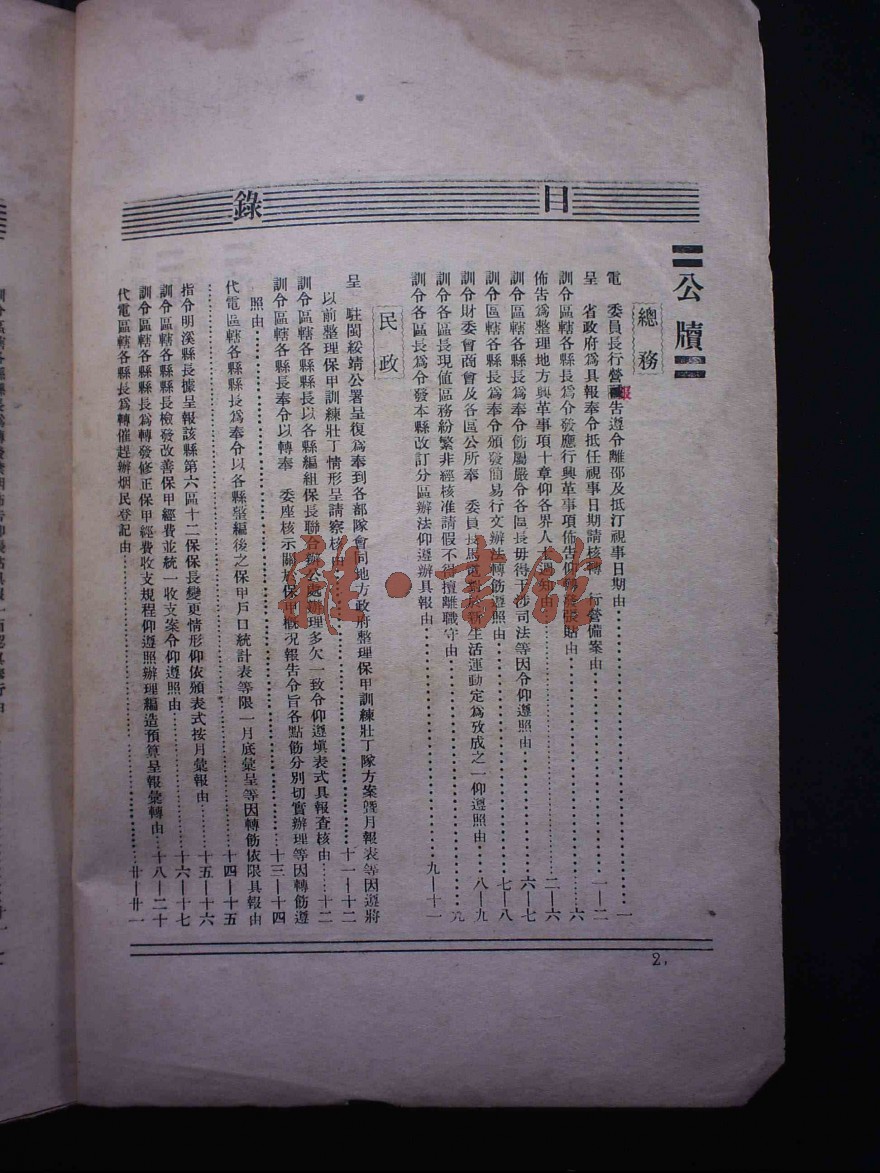 目錄
公牘
總務
電　委員長行營報告遵令離邵及抵汀視事日期由……一
呈　省政府爲具報奉令抵任視事日期請核轉　行營備案由……一—二
訓令區轄各縣長爲令發應行興革事項佈告仰轉發張貼由……六
佈告爲整理地方興革事項十章仰各界人士週知由……二—六
訓令區轄各縣長爲奉令飭屬嚴令各區長毋得干涉司法等因令仰遵照由……六—七
訓令區轄各縣長爲奉令頒發簡易行文辦法轉飭遵照由……七—八
訓令財委會商會及各區公所奉　委員長馬電對於新生活運動定爲攷成之一仰遵照由……八—九
訓令各區長現值區務紛繁非經核准請假不得擅離職守由……九
訓令各區長爲令發本縣改訂分區辦法仰遵辦具報由……九—十一
民政
呈　駐閩綏靖公署呈復爲奉到各部隊會同地方政府整理保甲訓練壯丁隊方案曁月報表等因遵將
以前整理保甲訓練壯丁情形呈請察核由……十一—十二
訓令區轄各縣縣長以各縣編組保長聯合辦公處辦理多欠一致令仰遵塡表式具報查核由……十二
訓令區轄各縣長奉令以轉奉　委座核示關於保甲概況報告令旨各點飭分別切實辦理等因轉飭遵
照由……十三—十四
代電區轄各縣縣長爲奉令以各縣整編後之保甲戶口統計表等限一月底彙呈等因轉飭依限具報由
……十四—十五
指令明溪縣長據呈報該縣第六區十二保保長變更情形仰依頒表式按月彙報由……十五—十六
訓令區轄各縣縣長檢發改善保甲經費並統一收支案令仰遵照由……十六—十七
訓令區轄各縣縣長爲轉發修正保甲經費收支規程仰遵照辦理編造預算呈報彙轉由……十八—二十
代電區轄各縣長爲轉催趕辦烟民登記由……廿—廿一
2.
雜·書館